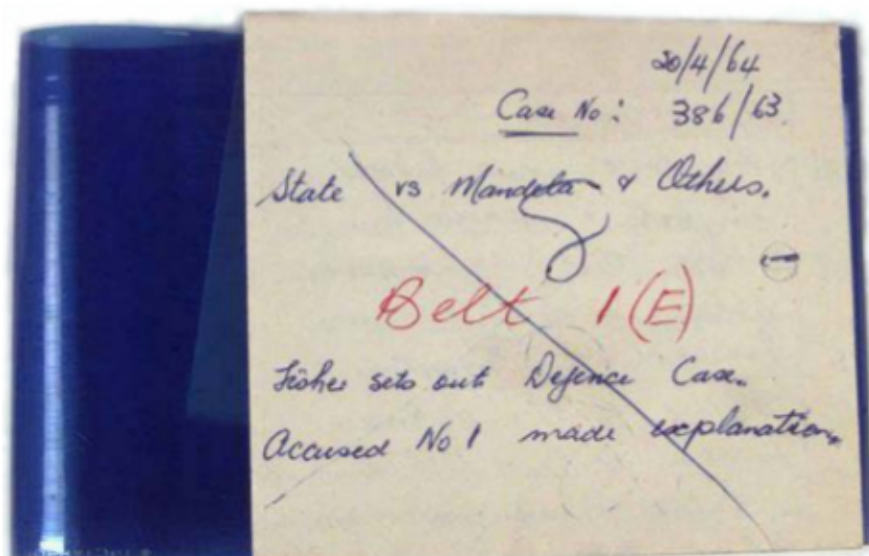 20/4/64
Case No: 386/63.
State vs Mandela & Others.
Belt 1(E)
Fisher sets out Defence Case.
Accused No 1 made explanation.